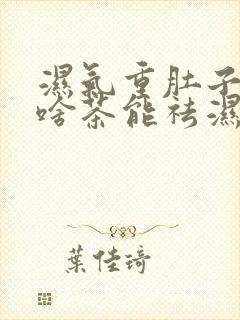 濕氣重肚子
啥茶能祛濕
葉佳琦